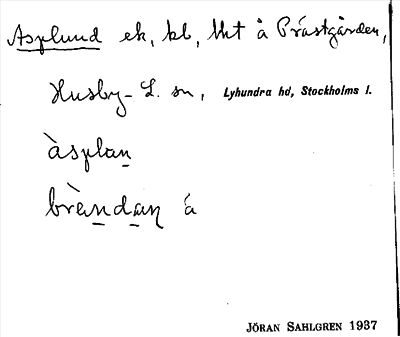 Asplund ek, kl, tht å Prästgården,
Husby-L. sn, Lyhundra hd, Stockholms l.
àsplan
brèndan á
JÖRAN SAHLGREN 1937